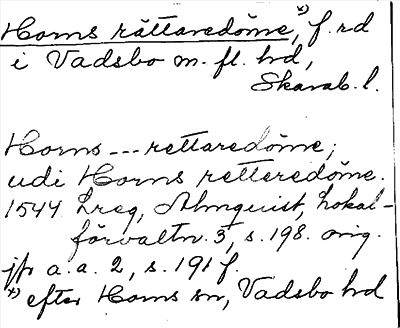 Horns rättaredöme,*) f. rd
i Vadsbo m. fl. hd,
Skarab. l.
Horns --- rettaredöme;
udi Horns retteredöme.
1544 Lreg, Almquist, Lokal-
förvaltn. 3, s. 198. orig.
jfr a. a. 2, s. 191 f.
*) efter Horns sn, Vadsbo hd